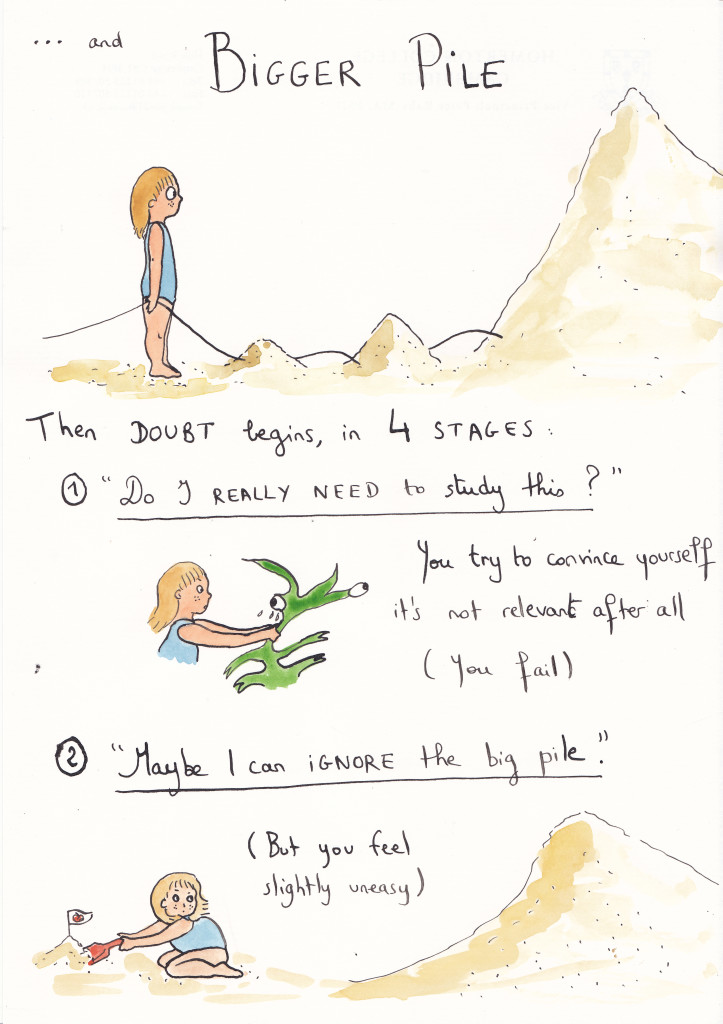 ... and
BIGGER PILE
Then DOUBT begins, in 4 STAGES:
1 "Do I REALLY NEED to study this ?"
You try to convince yourself
it's not relevant after all
(You fail)
2 "Maybe I can iGNORE the big pile."
(But you feel
slightly uneasy)